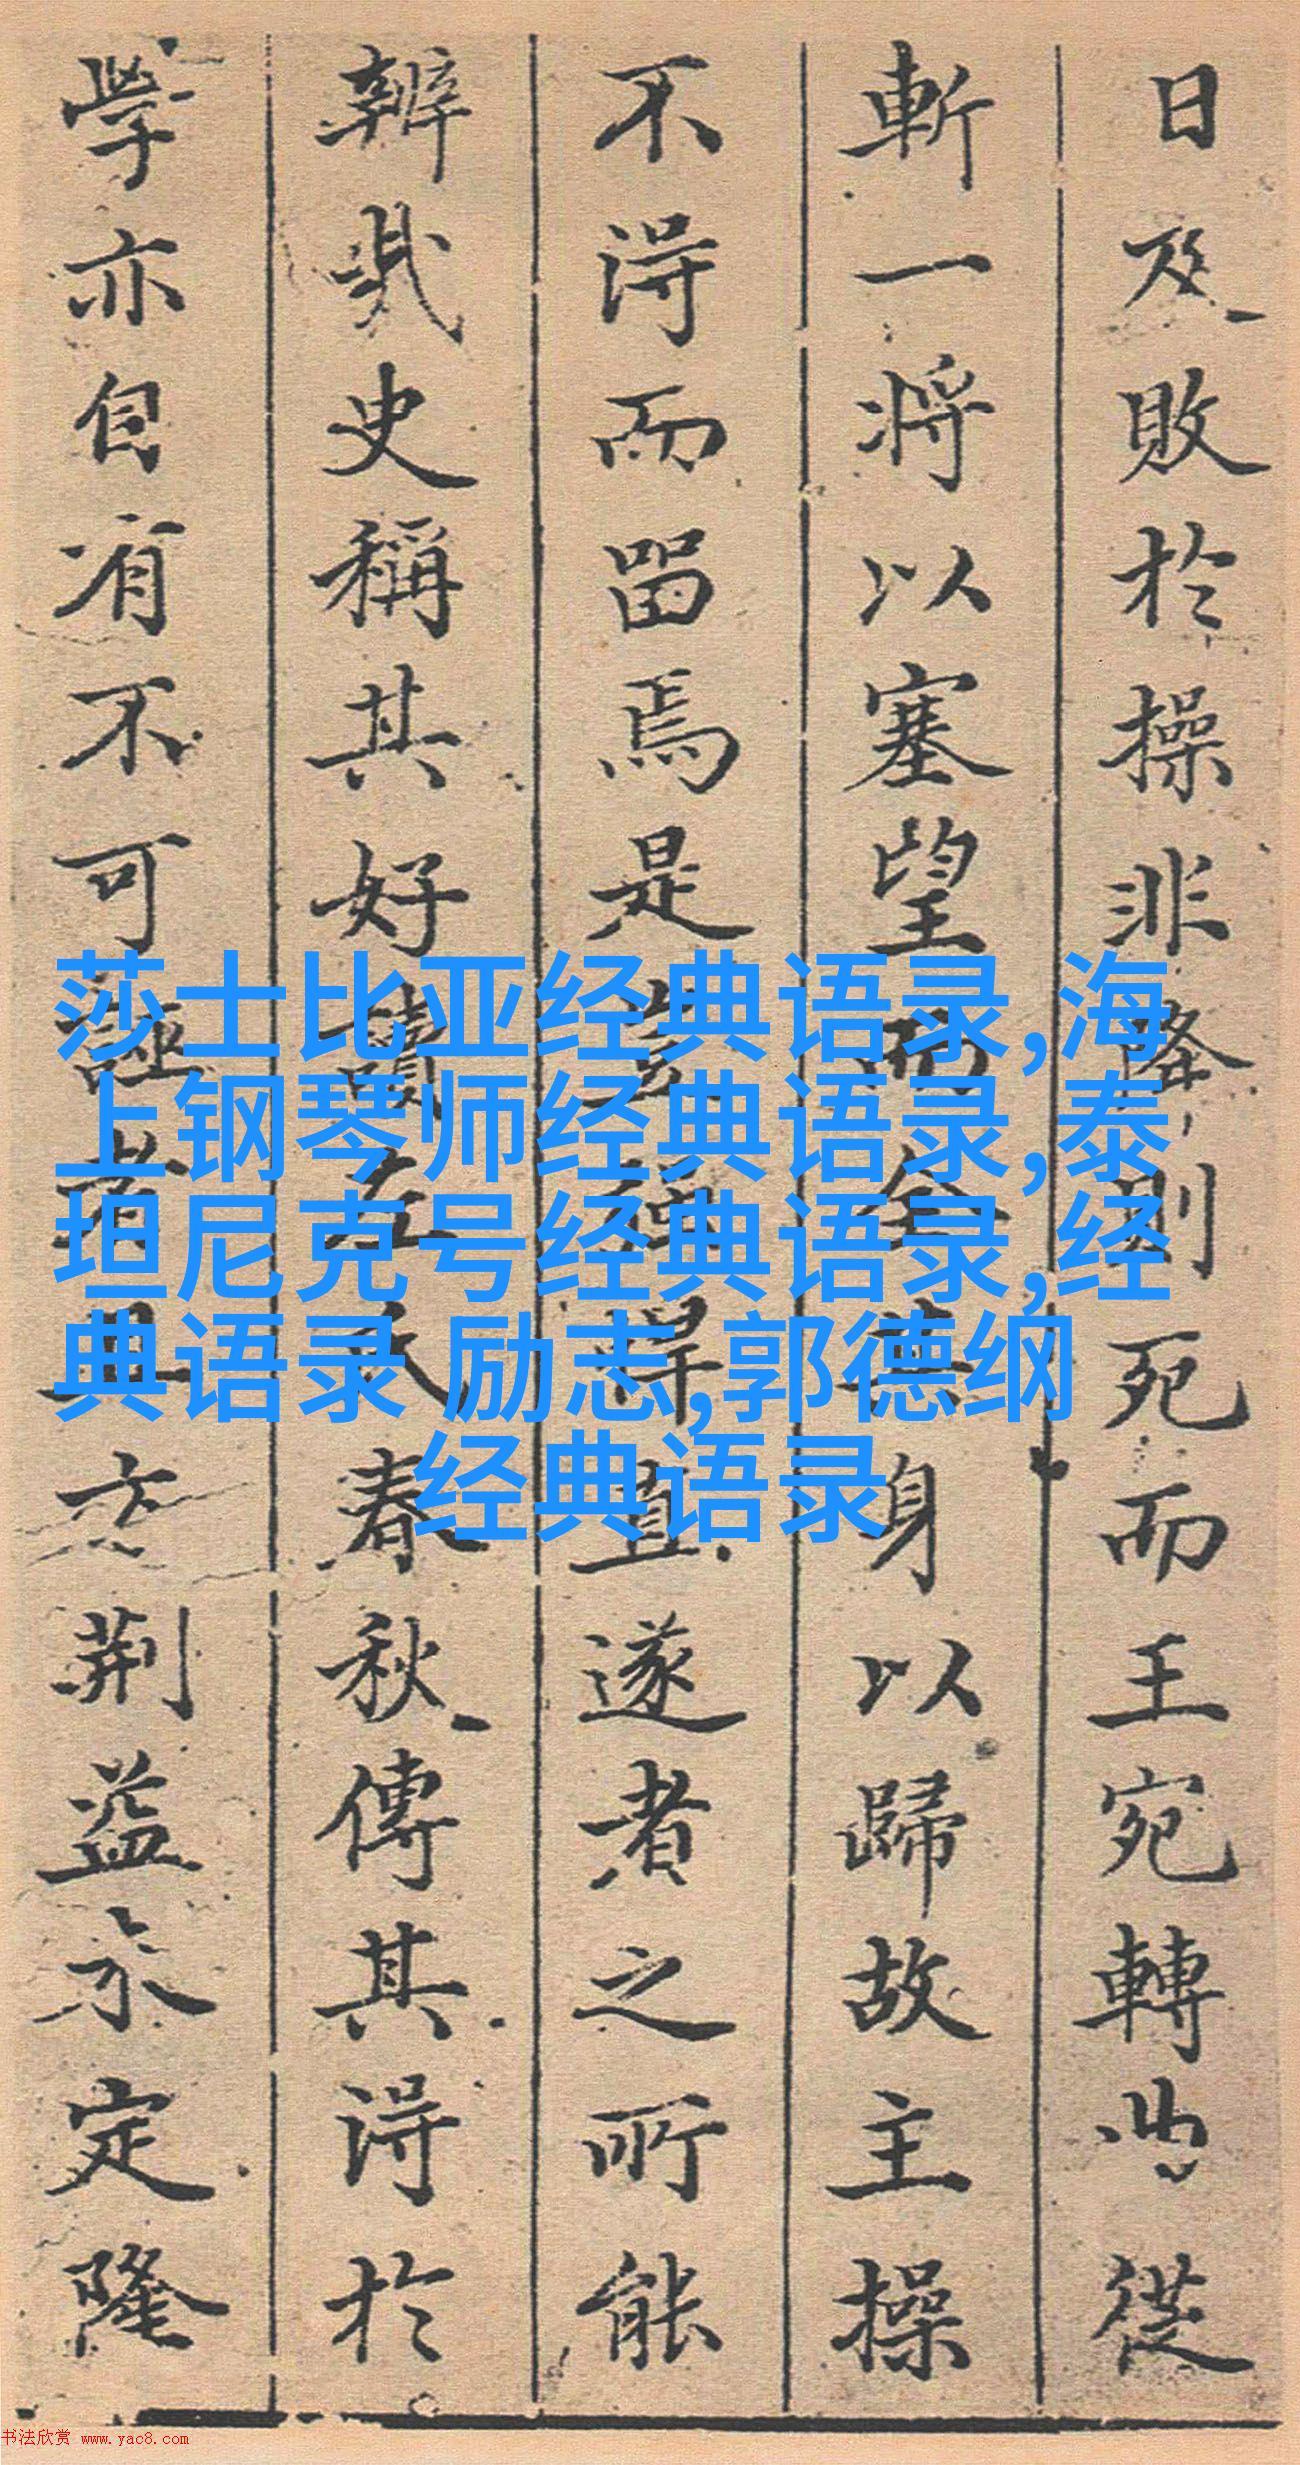 日及敗於操非降則死而王宛轉曲從
斬一將以塞望而全其身以歸故主操
不得而留焉是豈獰悍直遂者之所能
辨哉史稱其好讀左氏春秋傳其得於
學亦自有不可誣者具立荆益未定隆
莎士比亚经典语录,海
上钢琴师经典语录,泰
坦尼克号经典语录,经
典语录 励志,郭德纲
经典语录
书法欣赏 www.yac8.com